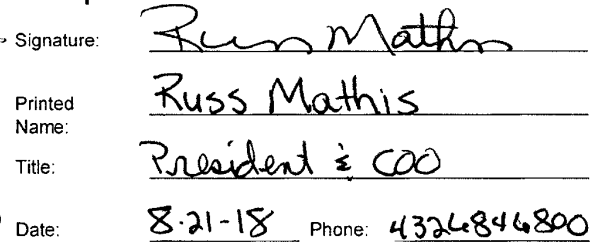 Signature: Russ Mathis
Printed Name: Russ Mathis
Title: President & COO
Date: 8-21-18 Phone: 4326846800